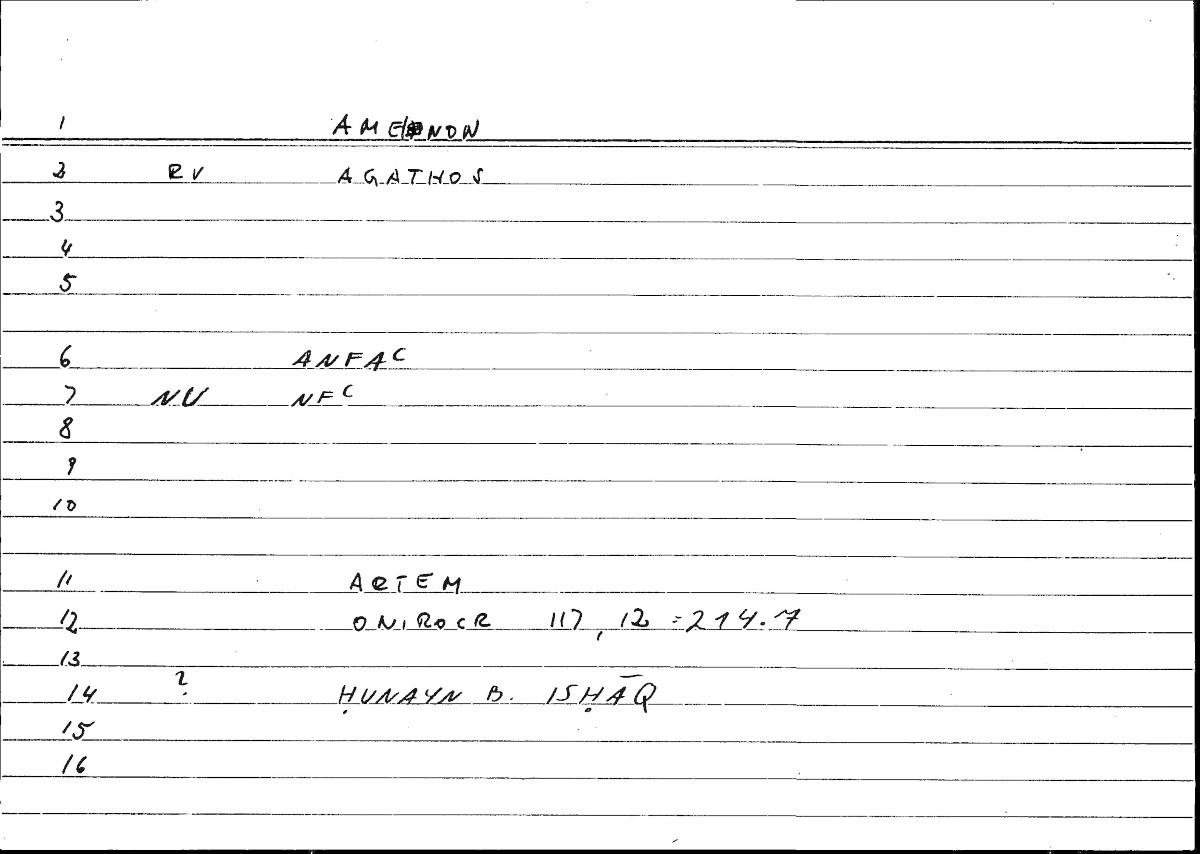 1 AMEINON
2 RV AGATHOS
3
4
5
6 ANFAC
7 NU NFC
8
9
10
11 ARTEM
12 ONIROCR 117, 12 = 214.7
13
14 ? ḤUNAYN B. ISḤĀQ
15
16